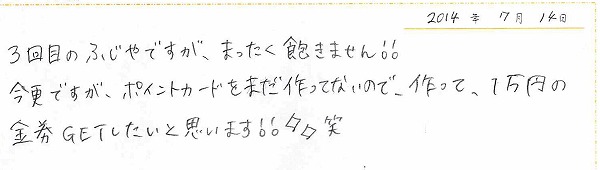 2014年 7月 14日
3回目のふじやですが、まったく飽きません!!
今更ですが、ポイントカードをまだ作ってないので、作って、1万円の
金券GETしたいと思います!! 笑